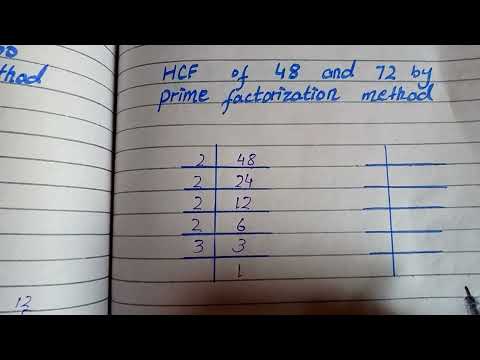 thod
HCF of 48 and 72 by
prime factorization method
2 48
2 24
2 12
2 6
3 3
1
12